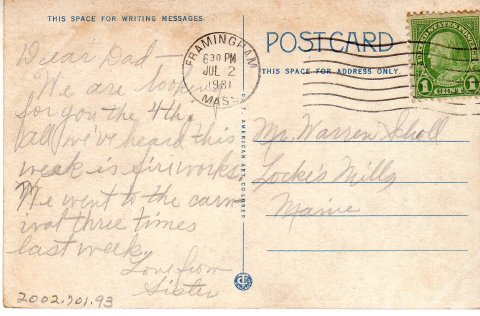 THIS SPACE FOR WRITING MESSAGES.
POSTCARD
THIS SPACE FOR ADDRESS ONLY.
FRAMINGHAM
630 PM
JUL 2
1931
MASS.
UNITED STATES POSTAGE
1 CENT 1
Dear Dad –
We are looking
for you the 4th.
All we've heard this
week is fireworks.
We went to the carn
ival three times
last week.
Love from
Sister
Mr. Warren Scholl
Locke's Mills
Maine
AMERICAN ART COLORED
2002.201.93